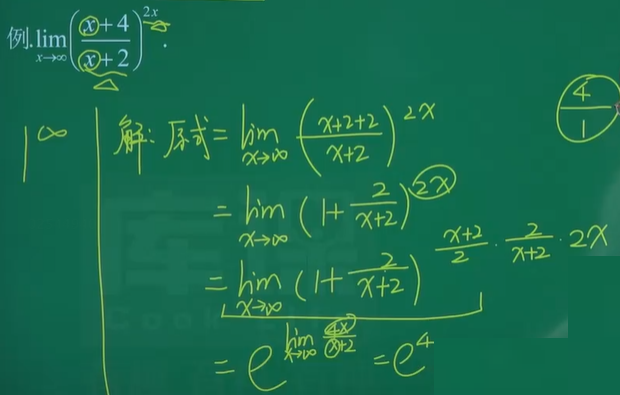 例. lim x→∞ ((x+4)/(x+2))^{2x}.
1^∞
解: 原式 = lim x→∞ ((x+2+2)/(x+2))^{2x}
4/1
= lim x→∞ (1+ 2/(x+2))^{2x}
= lim x→∞ (1+ 2/(x+2))^{(x+2)/2 · 2/(x+2) · 2x}
= e^{lim x→∞ 4x/(x+2)} = e^4